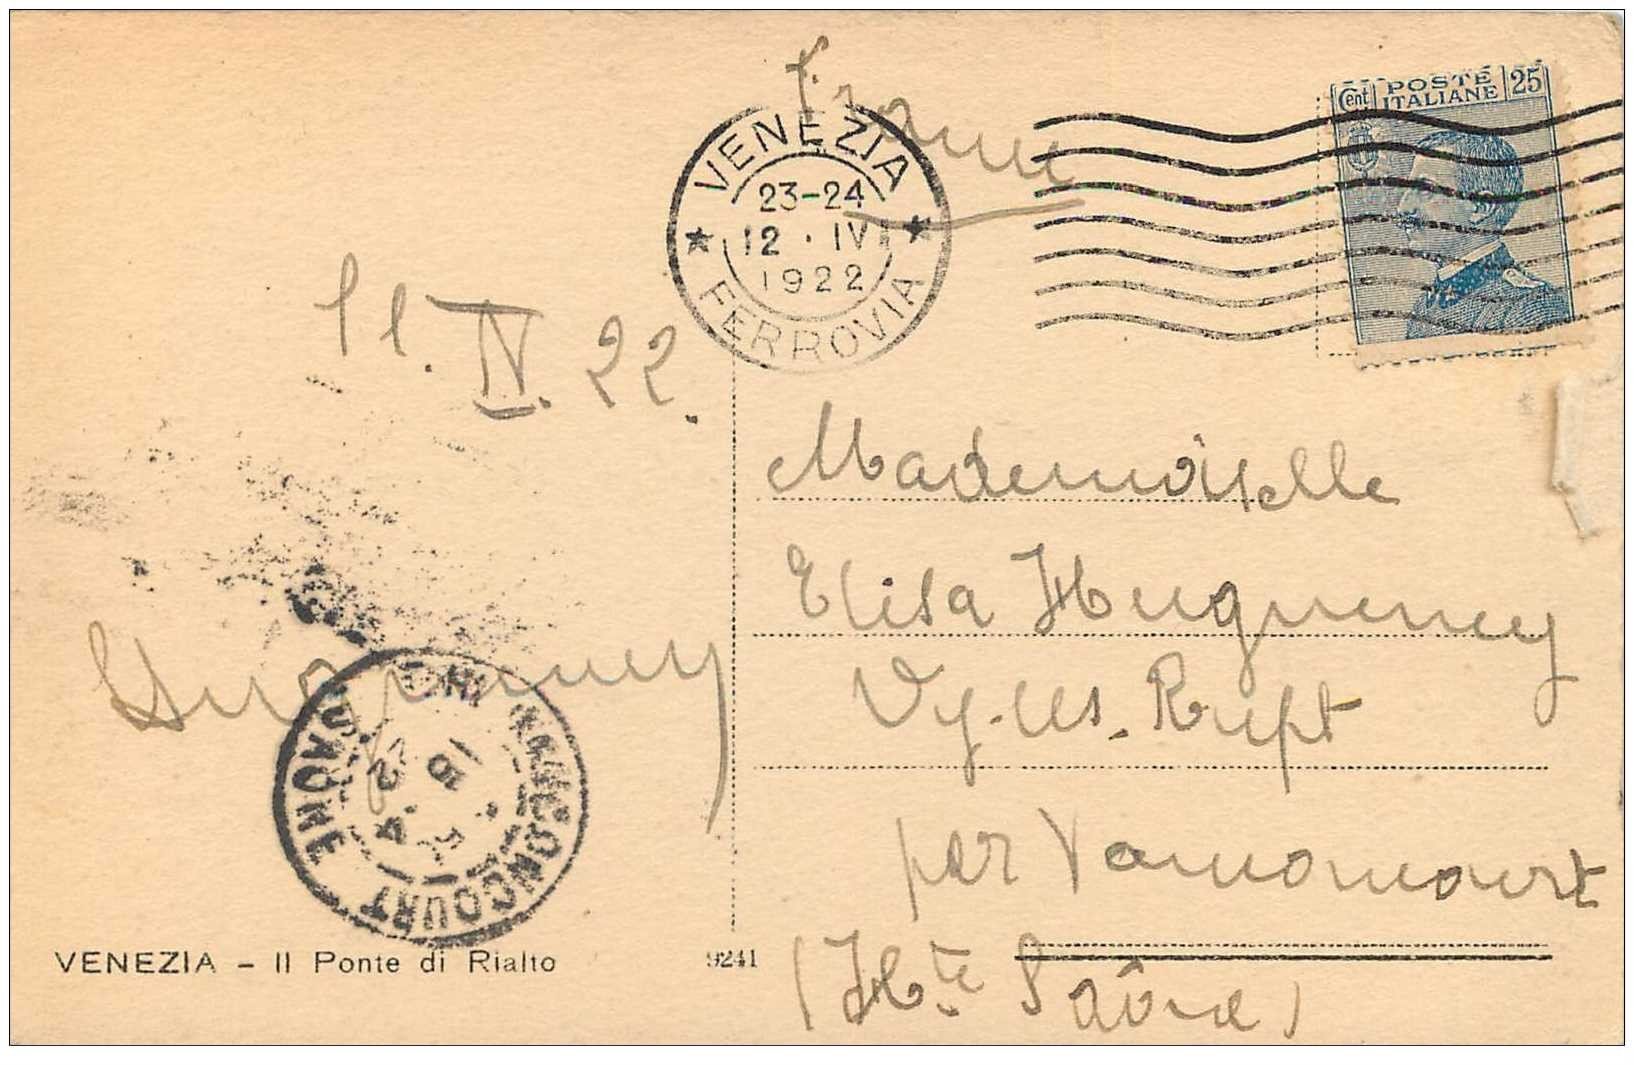 France
Cent POSTE 25
ITALIANE
VENEZIA
23-24
12 · IV
1922
FERROVIA
11. IV. 22.
Mademoiselle
Elisa Hugueney
Vy-les-Rupt
par Vauconcourt
(Hte Saône)
Hugueney
VAUCONCOURT
15
4
22
Hte SAONE
VENEZIA – Il Ponte di Rialto
9241